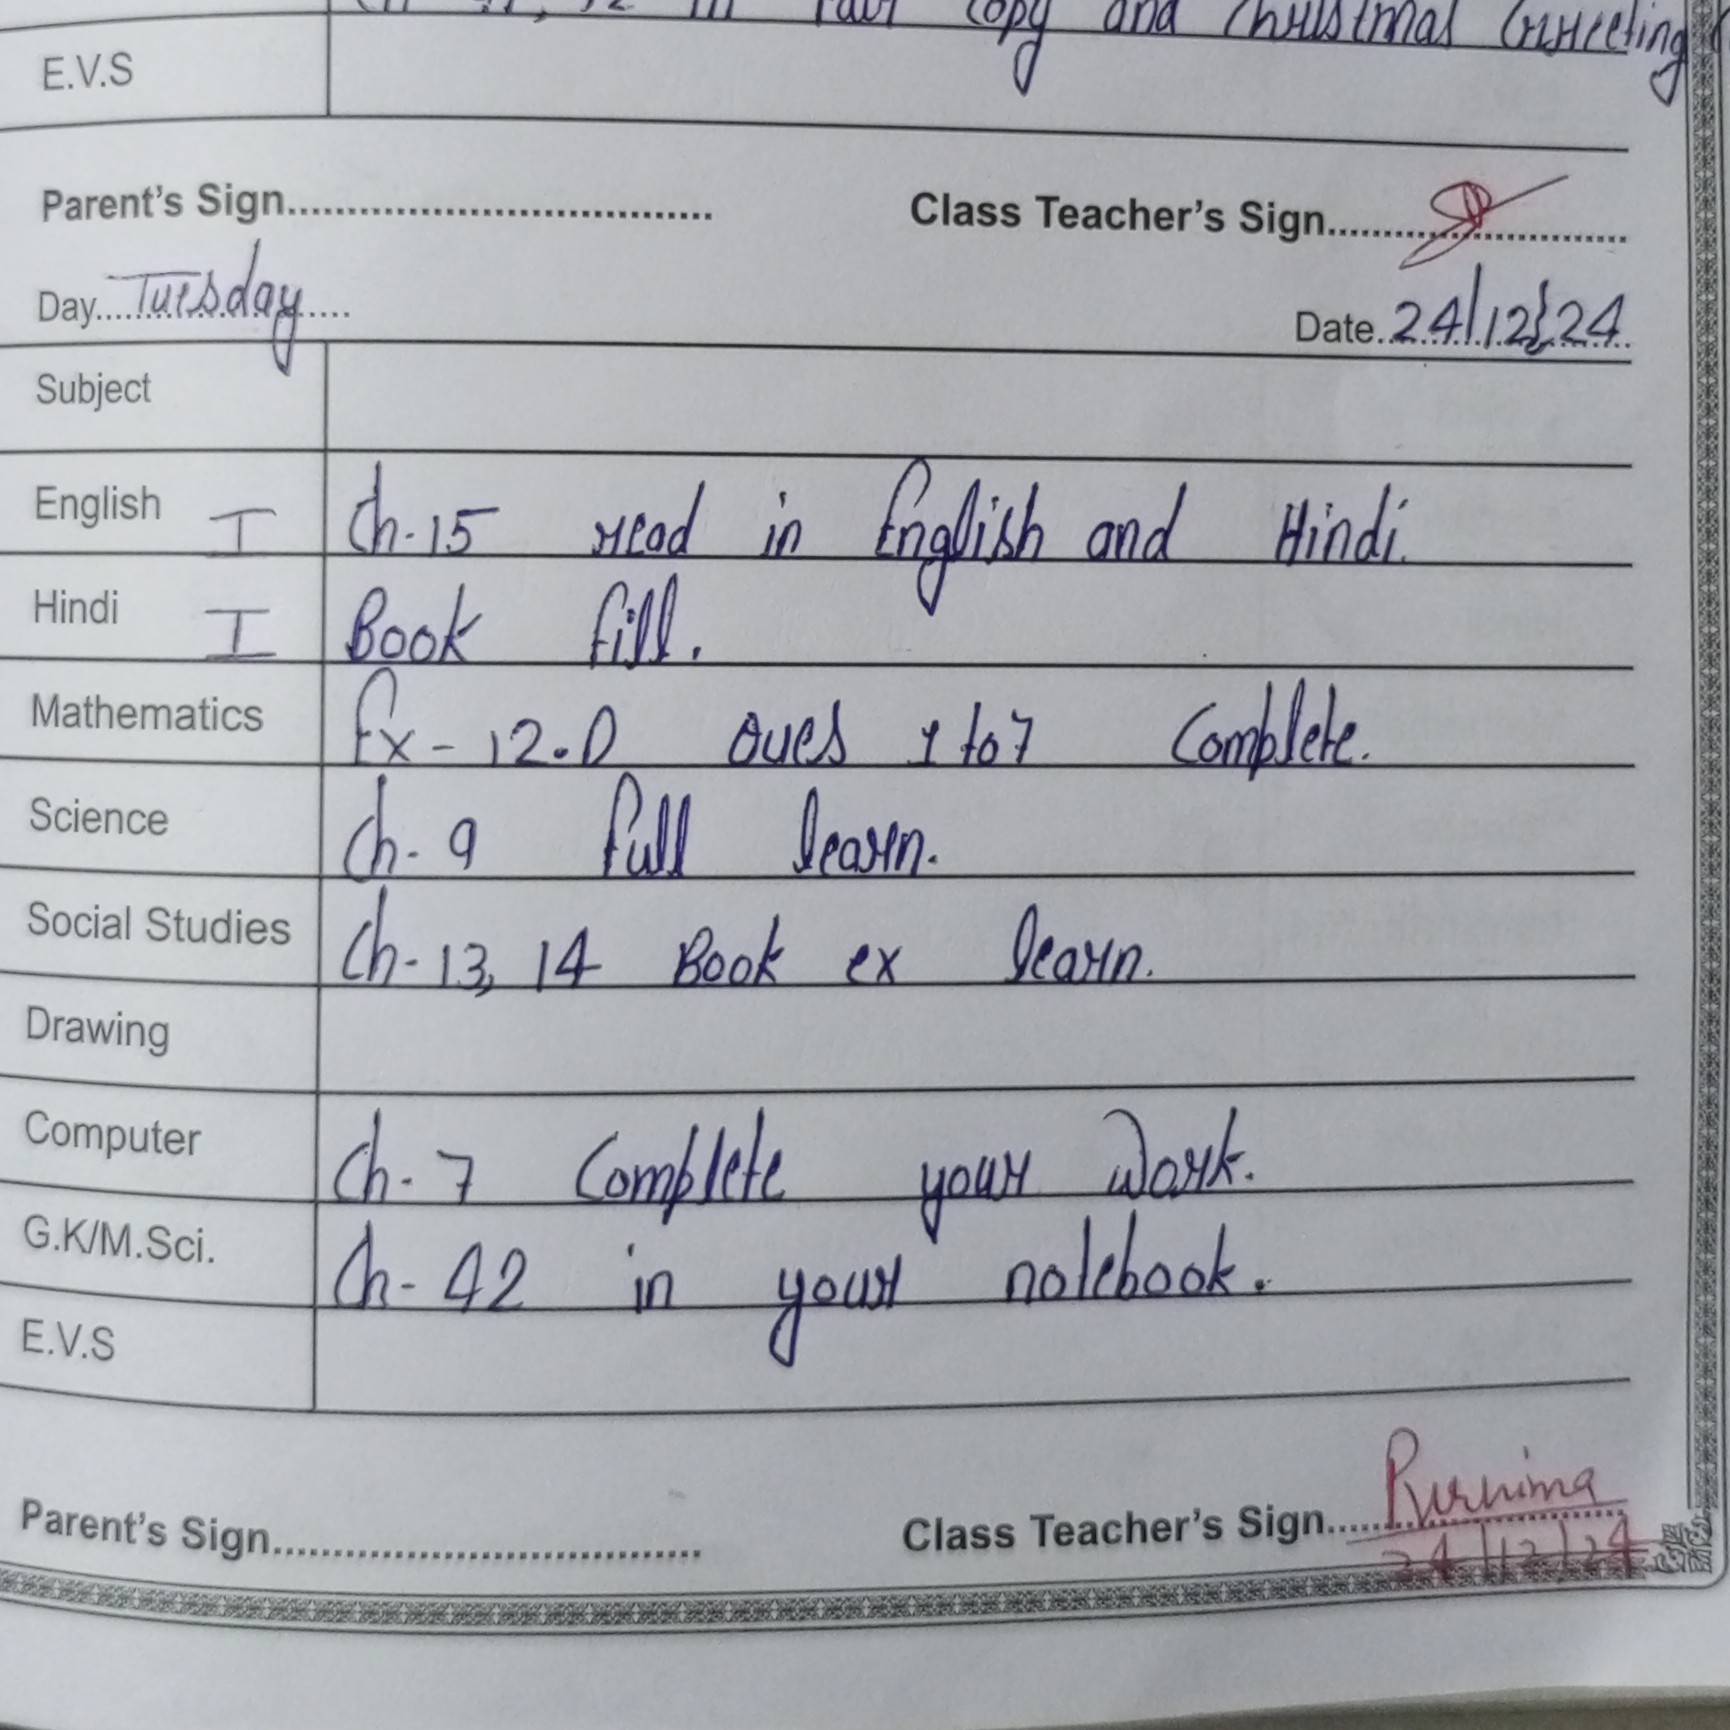 in fair copy and Christmas Greeting
E.V.S
Parent's Sign.................................... Class Teacher's Sign..........................
Day....Tuesday..... Date..24/12/24
Subject
English I Ch-15 read in English and Hindi.
Hindi I Book fill.
Mathematics Ex-12.D Ques 1 to 7 Complete.
Science Ch-9 full learn.
Social Studies Ch-13, 14 Book ex learn.
Drawing
Computer Ch-7 Complete your Work.
G.K/M.Sci. Ch-42 in your notebook.
E.V.S
Parent's Sign.................................... Class Teacher's Sign......Purnima
24/12/24